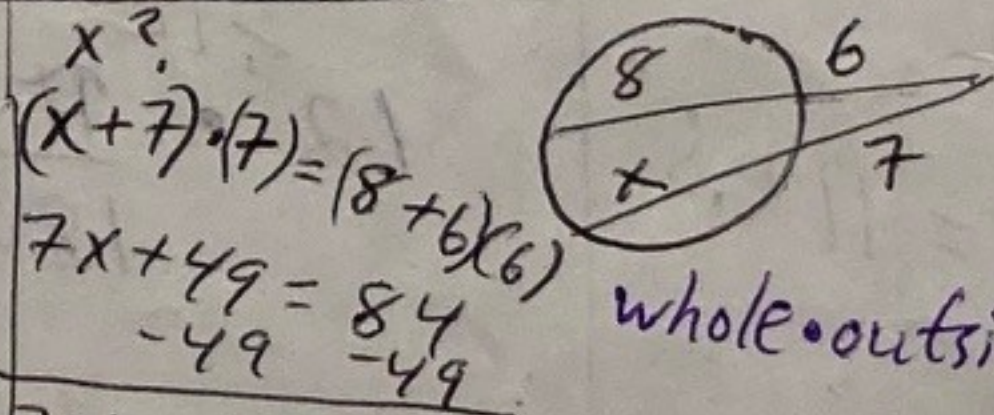 x?
(x+7)·(7)=(8+6)(6)
7x+49=84
-49 -49
8
6
x
7
whole•outsi